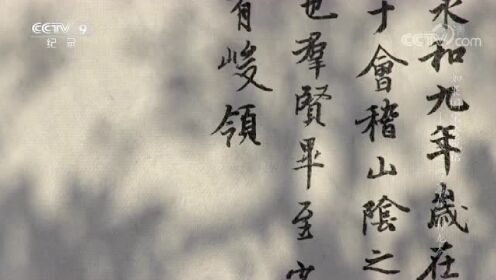 永和九年歲在
于會稽山陰之
也羣賢畢至少
有峻領
CCTV 9
纪录
CCTV.com